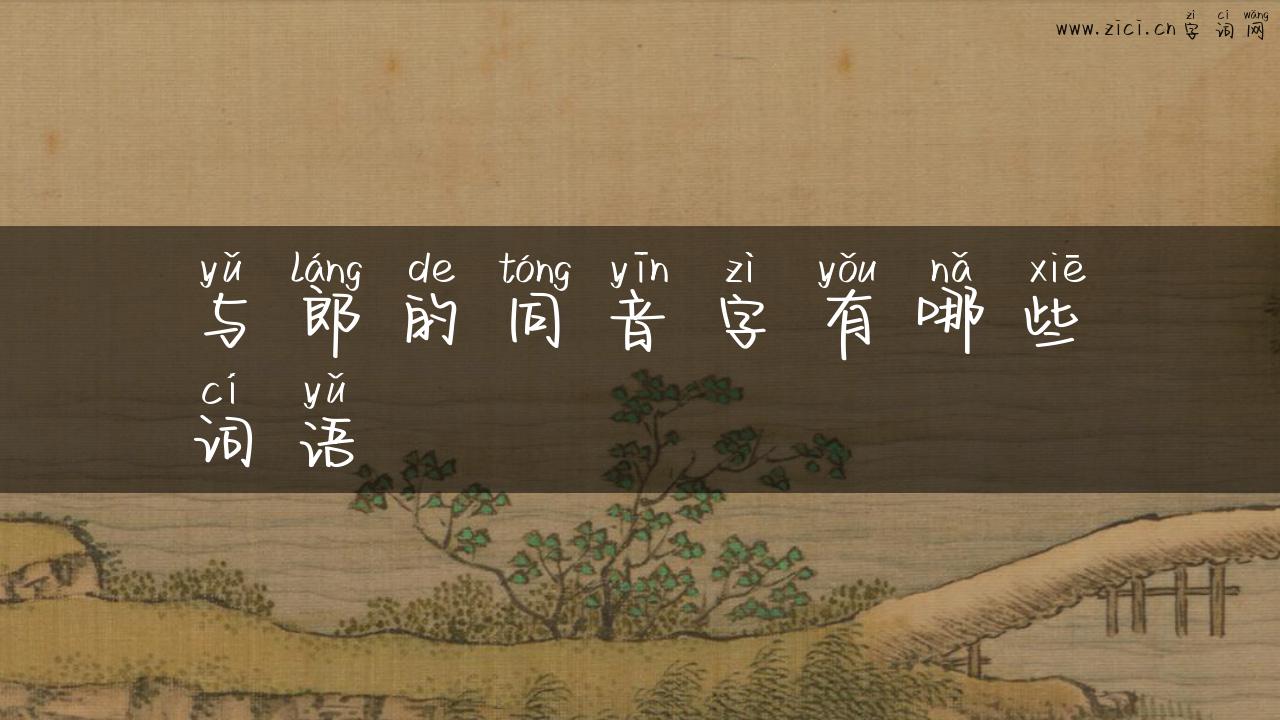 zì cí wǎng
www.zici.cn 字词网
yǔ láng de tóng yīn zì yǒu nǎ xiē
与郎的同音字有哪些
cí yǔ
词语